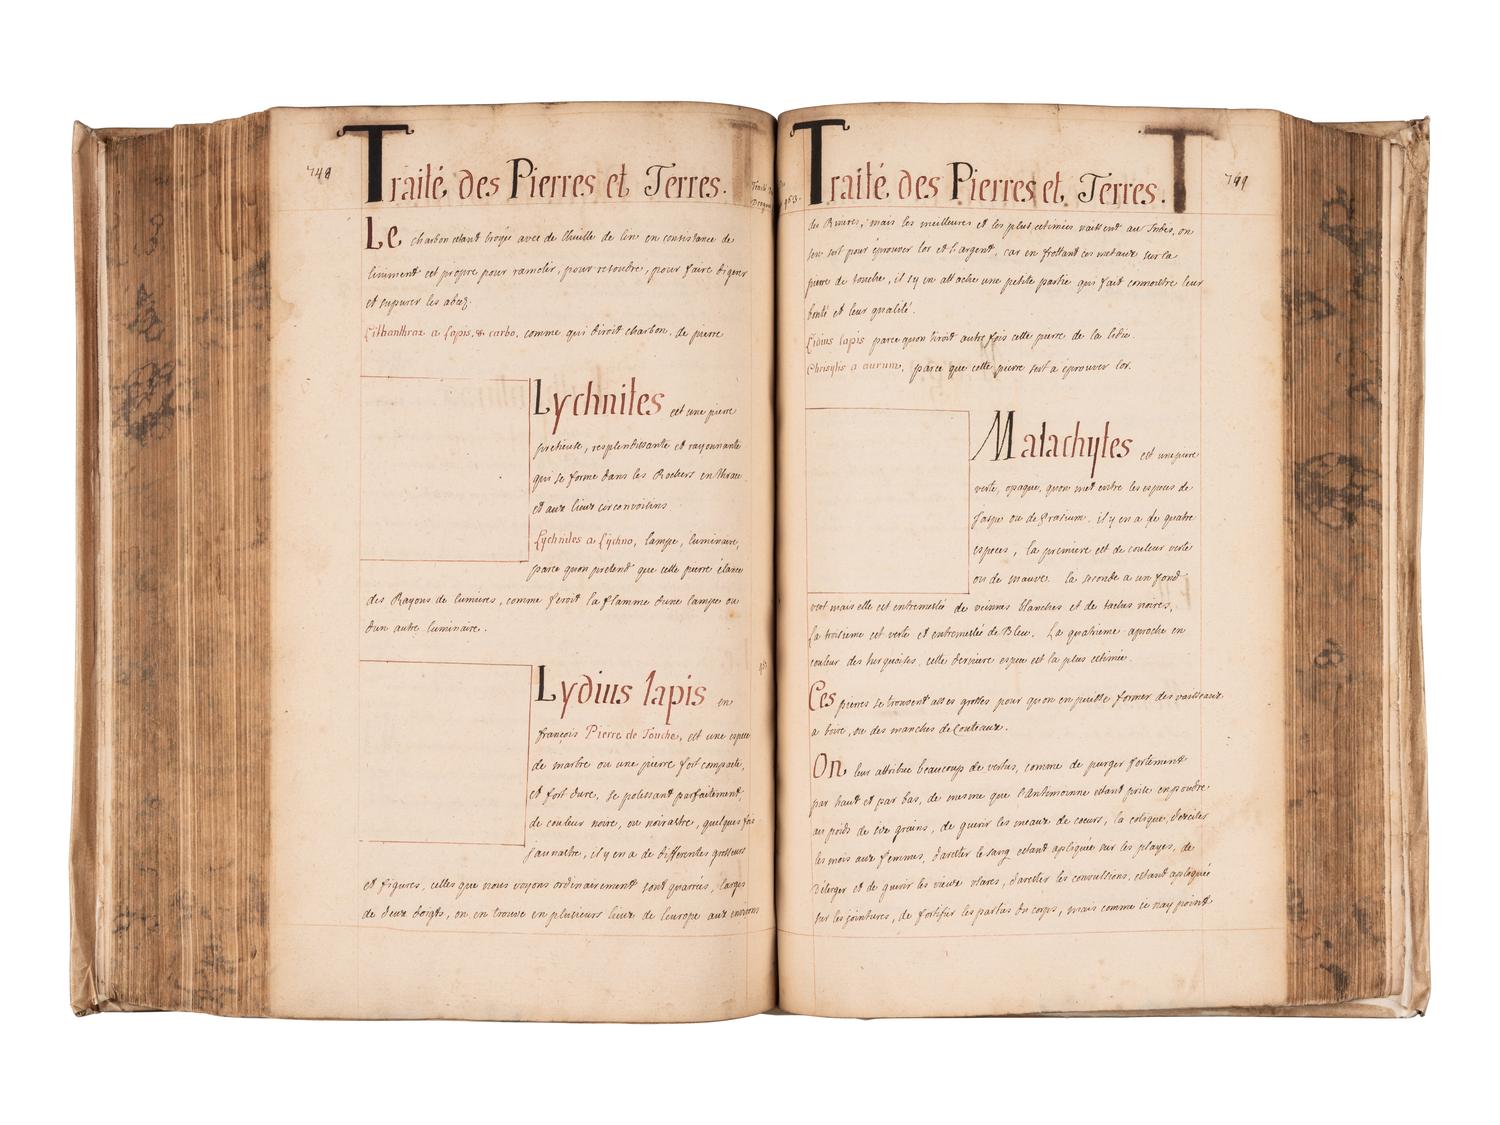 748
Traité des Pierres et Terres.
Le charbon etant broyé avec de l'huille de lin en consistance de
liniment est propre pour ramolir, pour resoudre, pour faire digerer
et supurer les abcez.
Lithanthrax a lapis, & carbo, comme qui diroit charbon, de pierre
Lychnites est une pierre
pretieuse, resplendissante et rayonnante
qui se forme dans les Rochers en thrace
et aux lieux circonvoisins
Lychnites a Lychno, lampe, luminaire,
parce quon pretend que cette pierre élance
des Rayons de lumieres, comme feroit la flamme dune lampe ou
dun autre luminaire.
Lydius lapis en
françois Pierre de Touche, est une espece
de marbre ou une pierre fort compacte,
et fort dure, se polissant parfaitement,
de couleur noire, ou noirastre, quelques fois
Jaunastre, il y en a de differentes grosseurs
et figures, celles que nous voyons ordinairement sont quarrées, larges
de deux doigts, on en trouve en plusieurs lieux de leurope aux environs
749
Traité des Pierres et Terres. T
des Rivieres, mais les meilleures et les plus estimées naissent au Indes, on
sen sert pour éprouver lor et l'argent, car en frottant ces metaux sur la
pierre de touche, il sy en attache une petite partie qui fait connoitre leur
bonté et leur qualité.
Lidius lapis parce quon tiroit autre fois cette pierre de la lidie.
Chrisytis a aurum, parce que cette pierre sert a éprouver lor.
Malachytes est une pierre
verte, opaque, quon met entre les especes de
Jaspe ou de Prasium. il y en a de quatre
especes, la premiere est de couleur verte
ou de mauve. la seconde a un fond
vert mais elle est entremeslée de veinnes blanches et de taches noires,
la troisieme est verte et entremeslée de Bleu. La quatrieme aproche en
couleur des turquoises, cette derniere espece est la plus estimée.
Ces pierres se trouvent asses grosses pour quon en puisse former des vaisseaux
a boire, ou des manches de Couteaux.
On leur attribue beaucoup de vertus, comme de purger fortement
par haut et par bas, de mesme que l'Antimoinne estant prise en poudre
au poids de six grains, de guerir les meaux de coeurs, la colique, d'exciter
les mois aux femmes, d'arester le sang estant apliquée sur les playes, de
déterger et de guerir les vieux ulceres, d'arester les convulsions, estant apliquée
sur les jointures, de fortifier les parties du corps, mais comme ie nay point